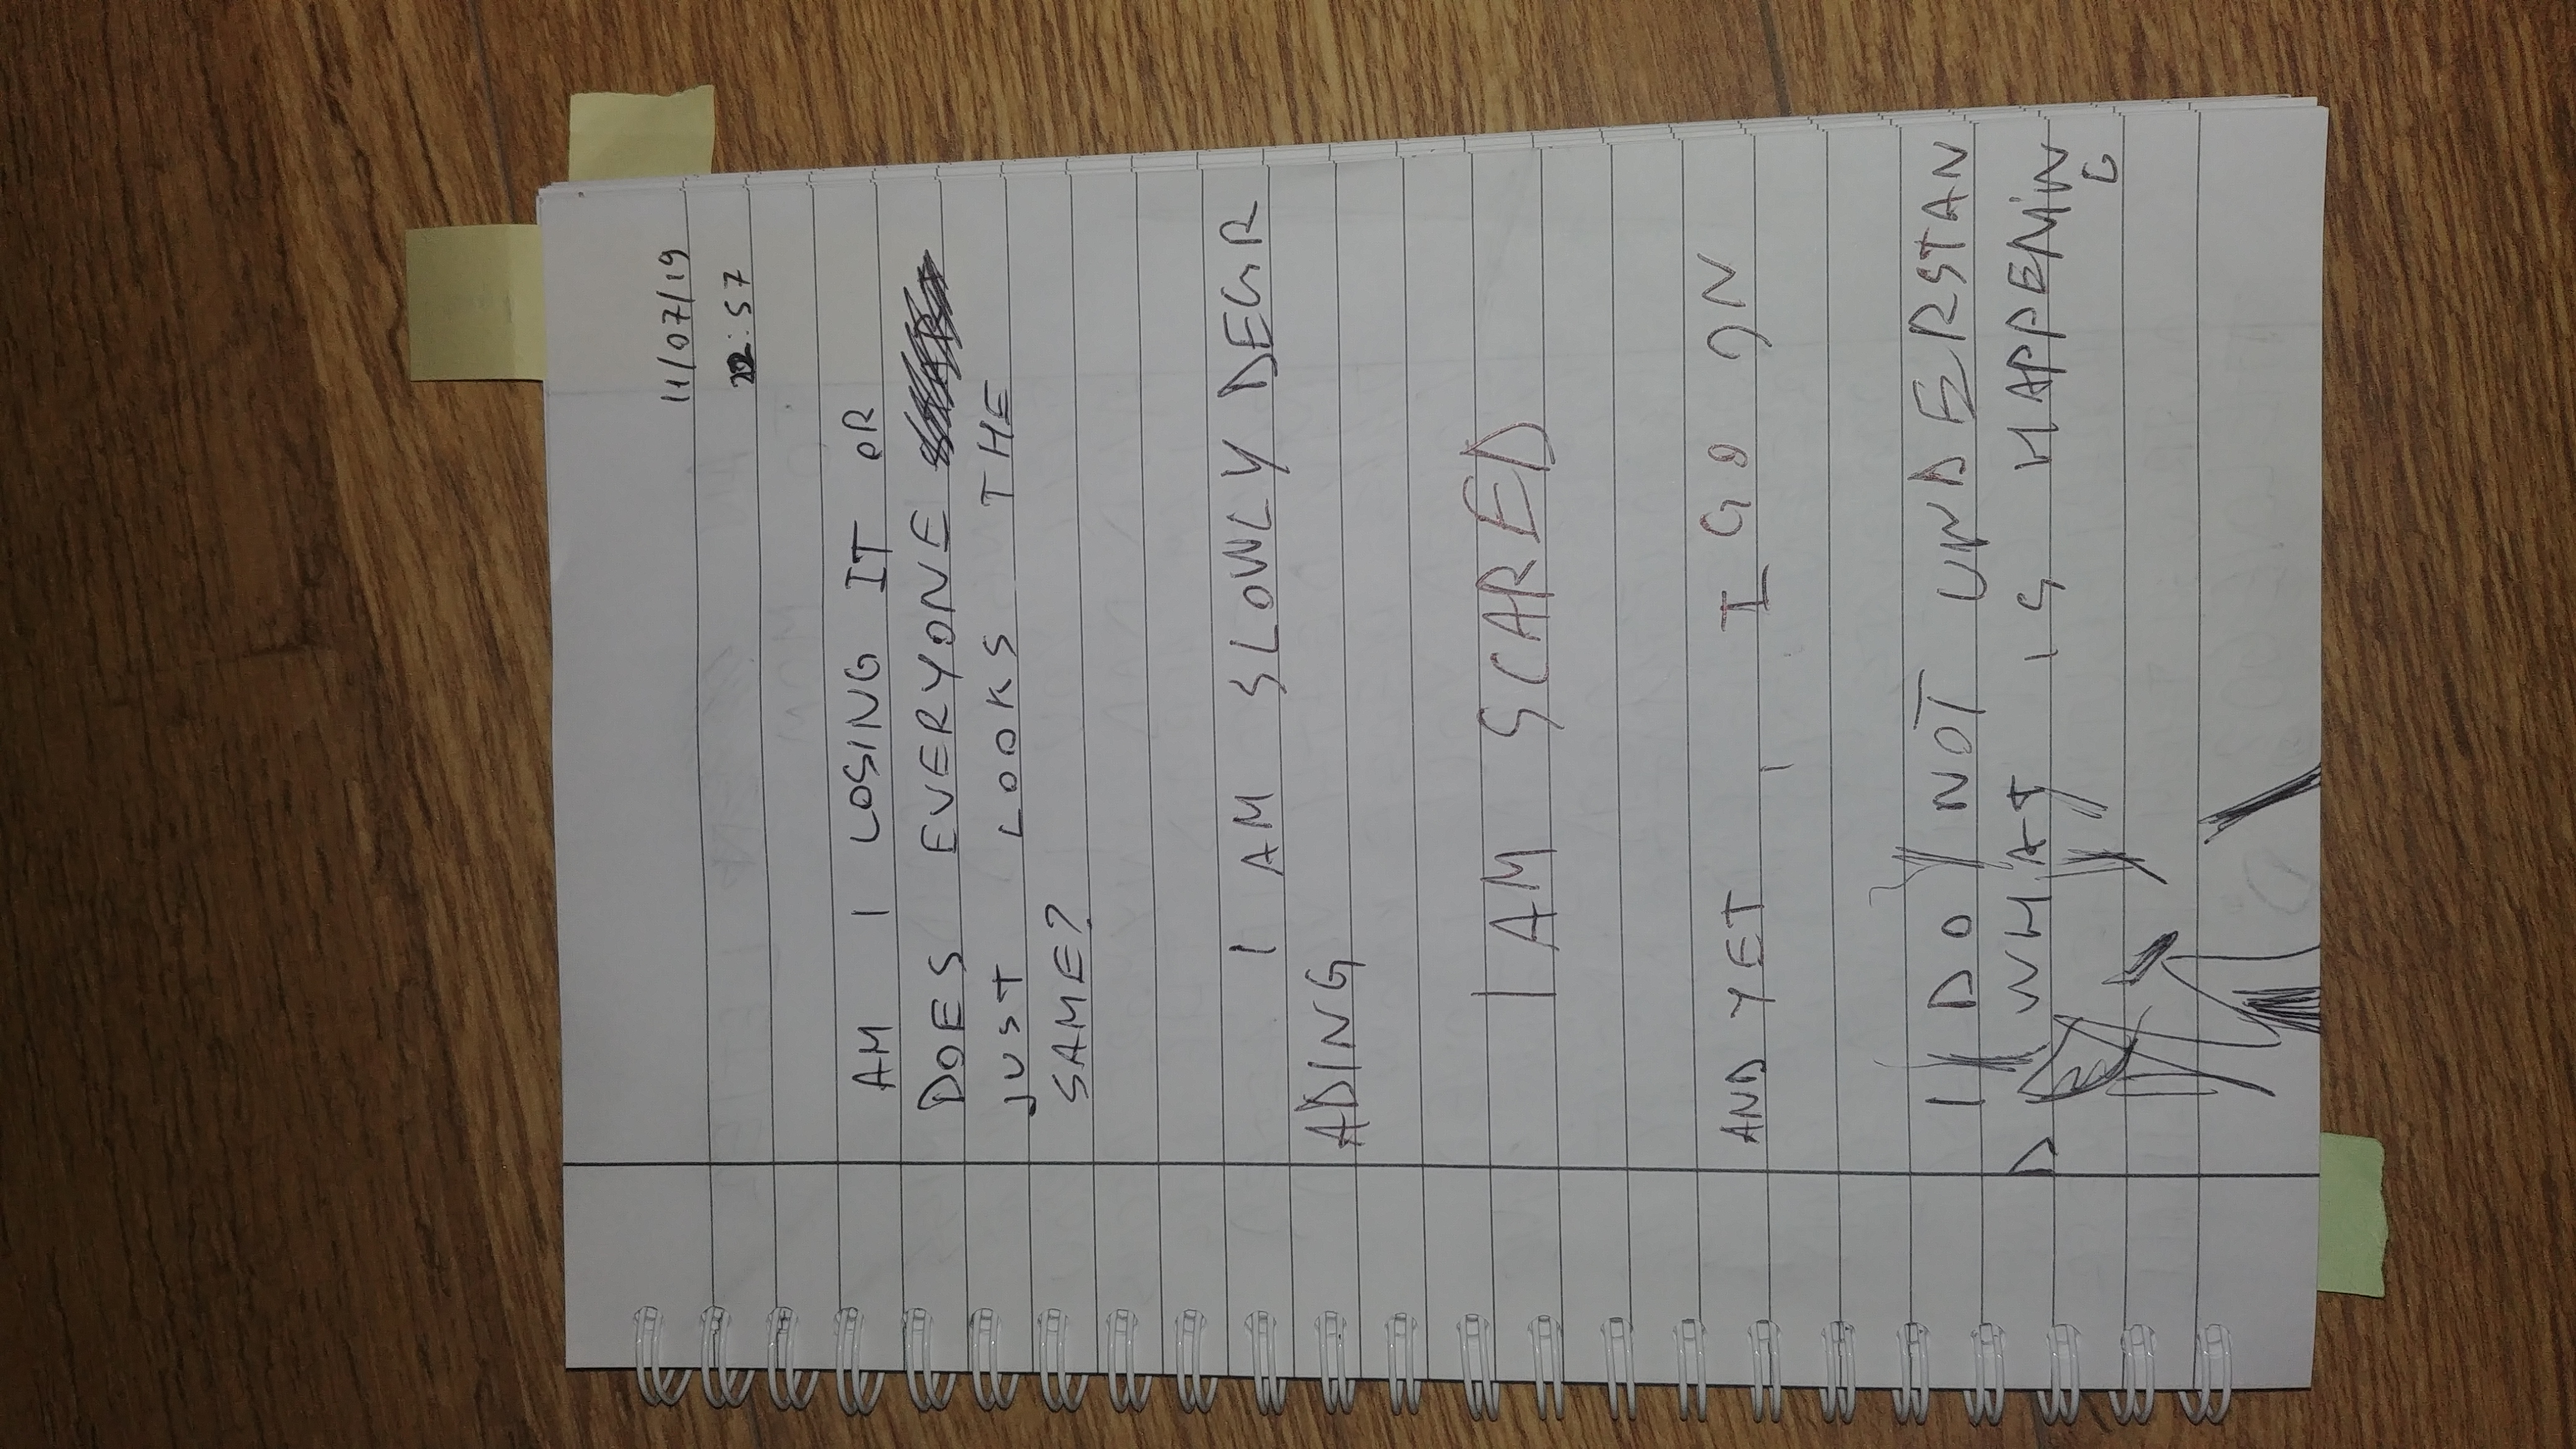 11/07/19
22:57
AM I LOSING IT OR
DOES EVERYONE
JUST LOOKS THE
SAME?
I AM SLOWLY DEGR
ADING
I AM SCARED
AND YET , I GO ON
I DO NOT UNDERSTAN
D WHAT IS HAPPENIN
G